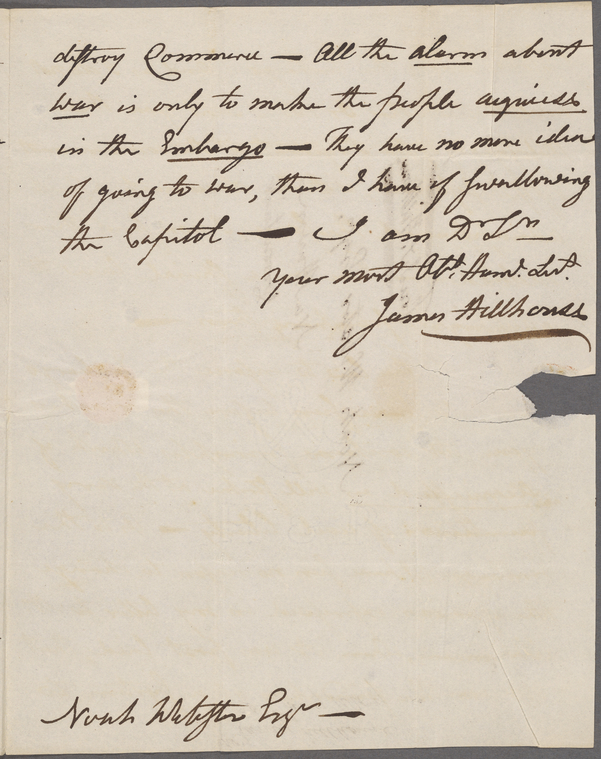 destroy Commerce — All the alarm about
war is only to make the people acquiesce
in the Embargo — They have no more idea
of going to war, than I have of swallowing
the Capitol — I am Dr Sr
your most Obt. Huml. Sert.
James Hillhouse
Noah Webster Esqr —